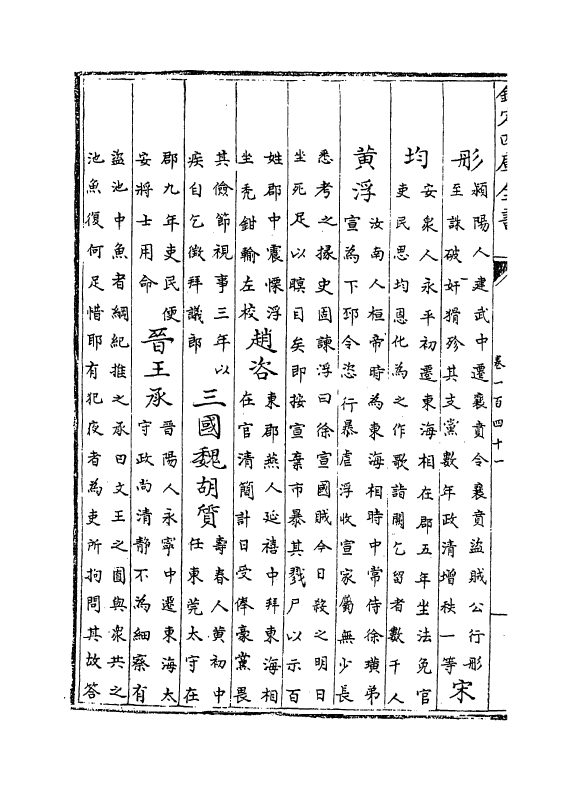 欽定四庫全書
卷一百四十一
彤
潁陽人建武中遷襄賁令襄賁盜賊公行彤
至誅破奸猾殄其支黨數年政清增秩一等
宋
均
安衆人永平初遷東海相在郡五年坐法免官
吏民思均恩化為之作歌詣闕乞留者數千人
黄浮
汝南人桓帝時為東海相時中常侍徐璜弟
宣為下邳令恣行暴虐浮收宣家屬無少長
悉考之掾史固諫浮曰徐宣國賊今日殺之明日
坐死足以瞑目矣即按宣棄市暴其戮尸以示百
姓郡中震慄浮
坐禿鉗輸左校
趙咨
東郡燕人延禧中拜東海相
在官清簡計日受俸豪黨畏
其儉節視事三年以
疾自乞徵拜議郎
三國魏胡質
壽春人黄初中
任東莞太守在
郡九年吏民便
安將士用命
晉王承
晉陽人永寧中遷東海太
守政尚清静不為細察有
盜池中魚者綱紀推之承曰文王之囿與衆共之
池魚復何足惜耶有犯夜者為吏所拘問其故答